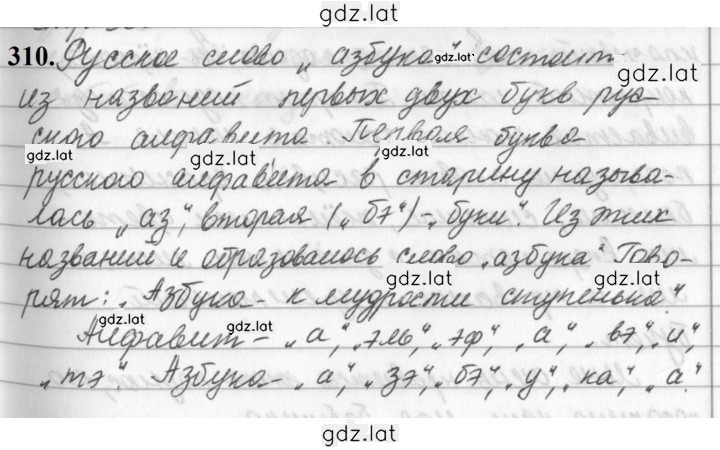 gdz.lat
310. Русское слово „азбука“ состоит
gdz.lat
gdz.lat
из названий первых двух букв рус-
ского алфавита. Первая буква
gdz.lat
gdz.lat
gdz.lat
русского алфавита в старину называ-
лась „аз“, вторая („бэ“) – „буки“. Из этих
названий и образовалось слово „азбука“. Гово-
gdz.lat
gdz.lat
рят: „Азбука – к мудрости ступенька“.
gdz.lat
gdz.lat
Алфавит – „а“, „эль“, „эф“, „а“, „вэ“, „и“,
„тэ“. Азбука – „а“, „зэ“, „бэ“, „у“, „ка“, „а“.
gdz.lat